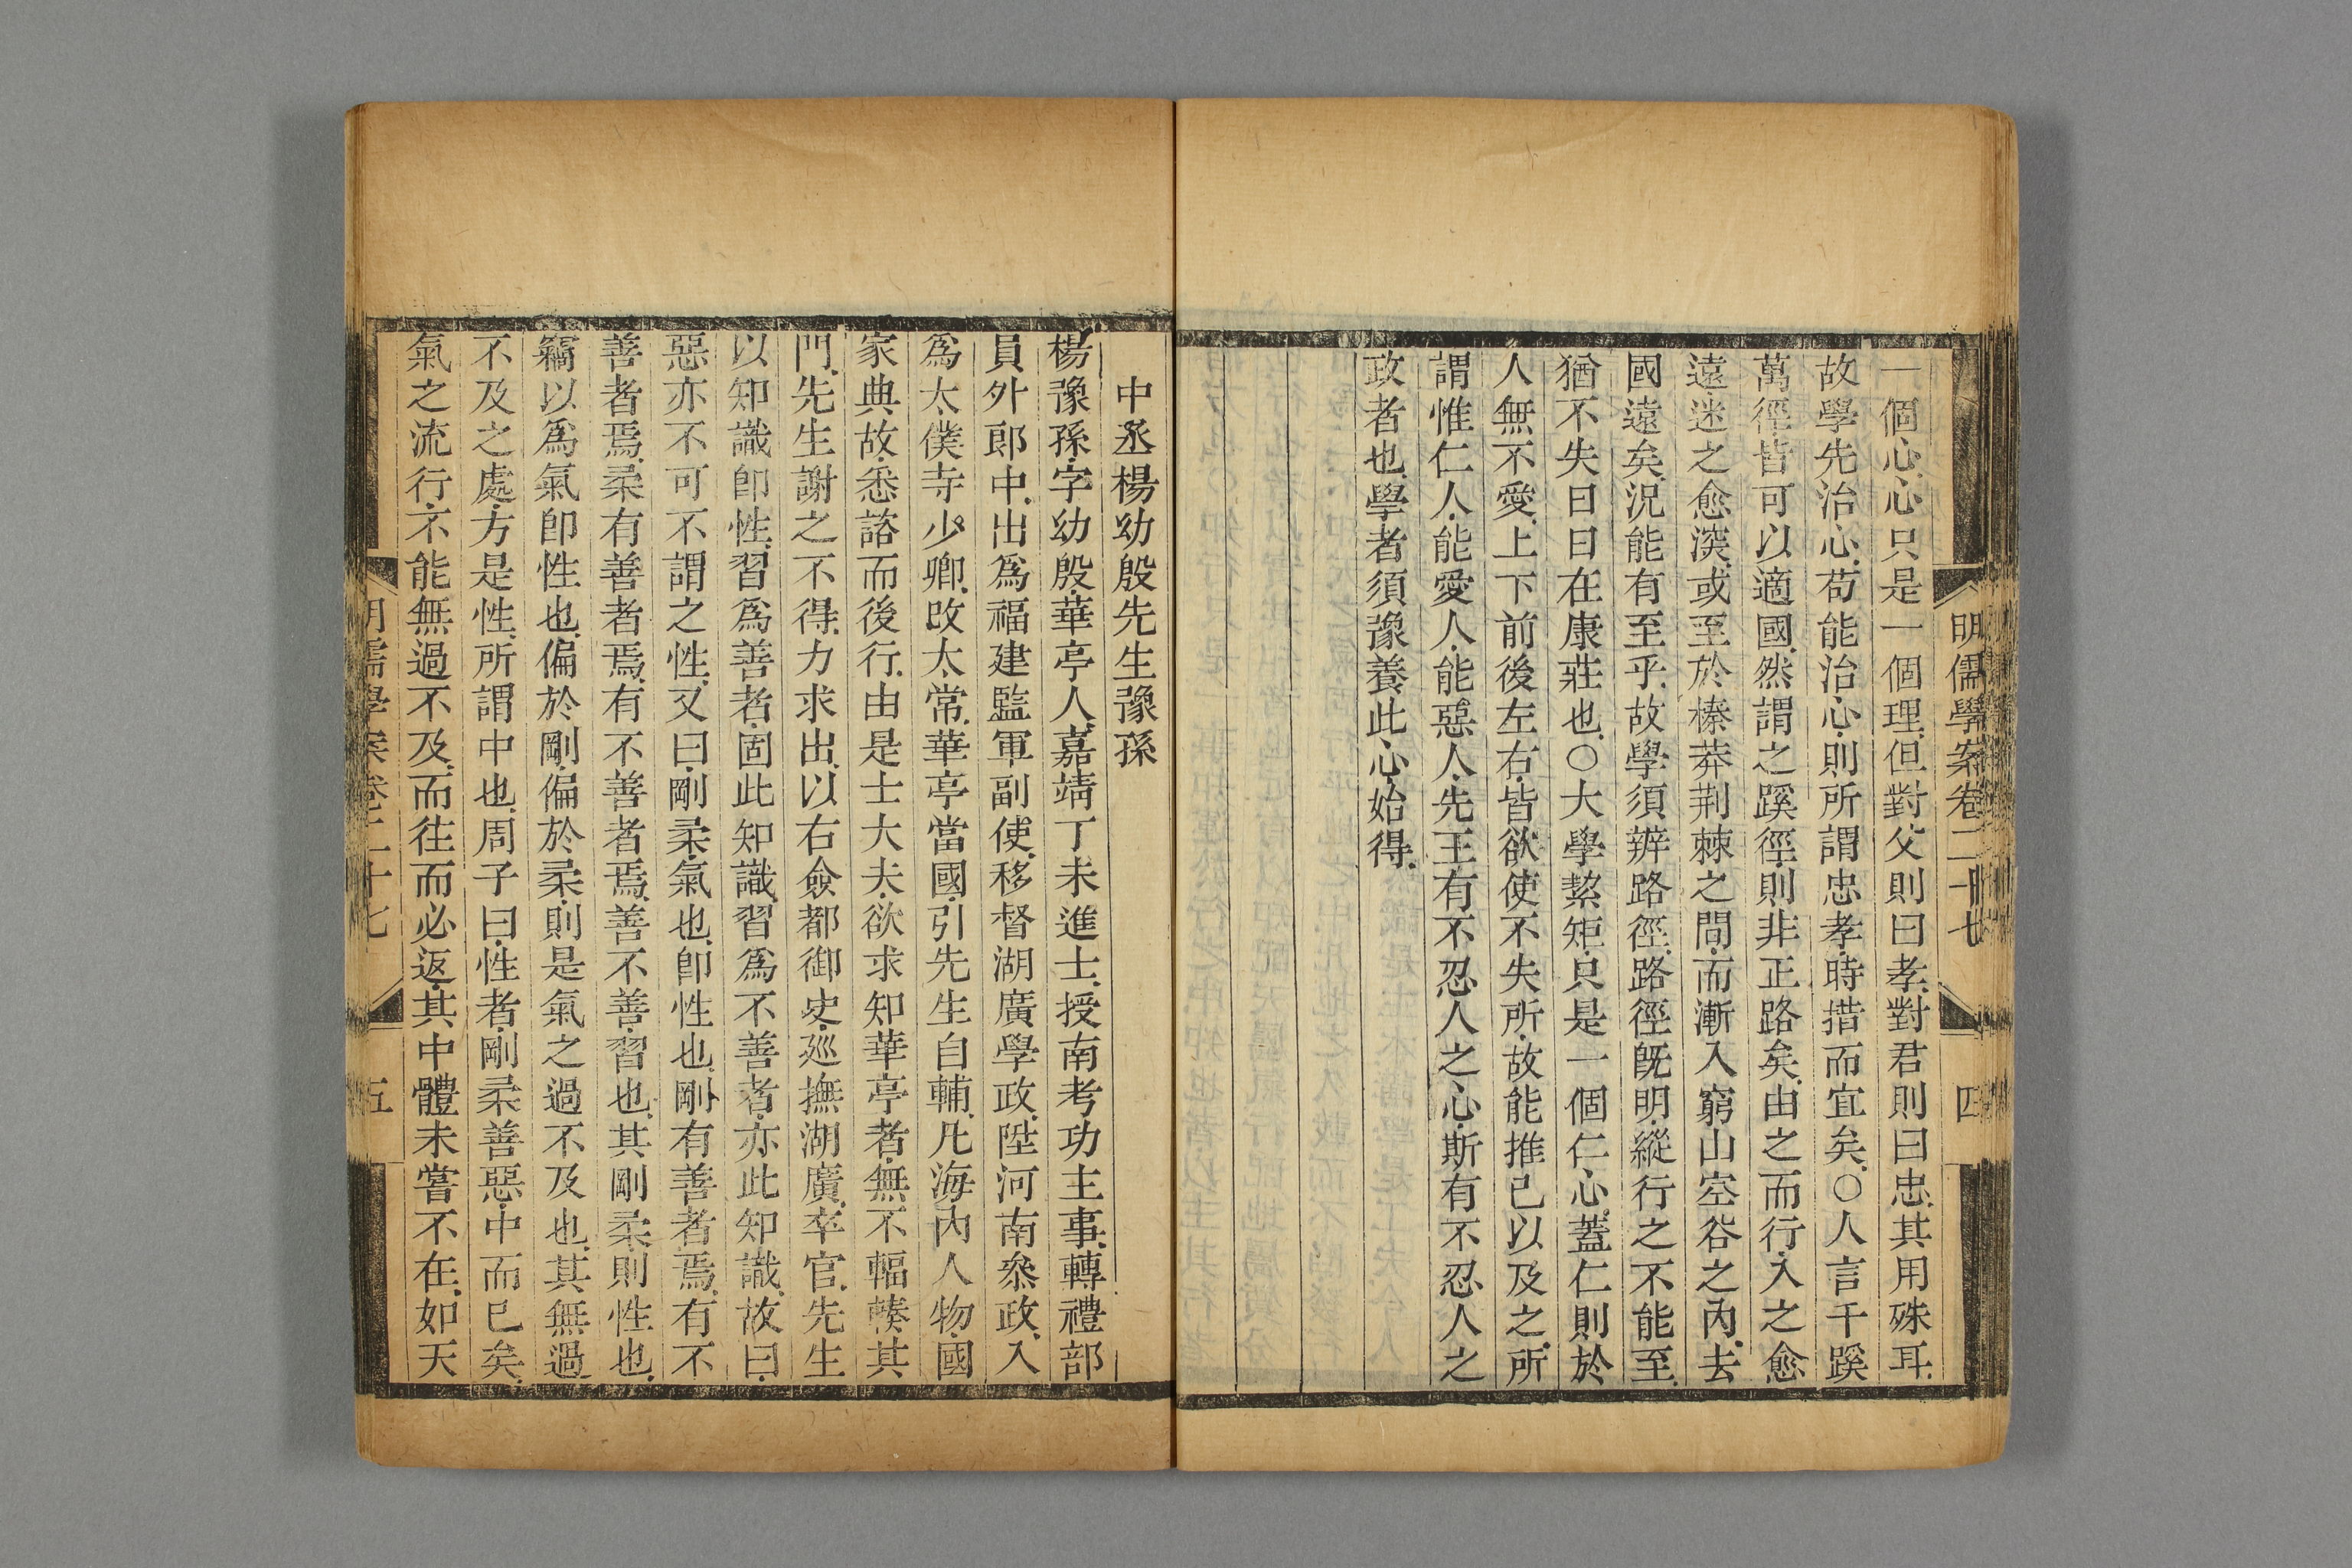 明儒學案卷二十七
四
一個心心只是一個理但對父則曰孝對君則曰忠其用殊耳
故學先治心苟能治心則所謂忠孝時措而宜矣○人言千蹊
萬徑皆可以適國然謂之蹊徑則非正路矣由之而行入之愈
遠迷之愈深或至於榛莽荆棘之間而漸入窮山空谷之內去
國遠矣況能有至乎故學須辨路徑路徑旣明縱行之不能至
猶不失日日在康莊也○大學絜矩只是一個仁心蓋仁則於
人無不愛上下前後左右皆欲使不失所故能推己以及之所
謂惟仁人能愛人能惡人先王有不忍人之心斯有不忍人之
政者也學者須豫養此心始得
中丞楊幼殷先生豫孫
楊豫孫字幼殷華亭人嘉靖丁未進士授南考功主事轉禮部
員外郎中出爲福建監軍副使移督湖廣學政陞河南叅政入
爲太僕寺少卿改太常華亭當國引先生自輔凡海內人物國
家典故悉諮而後行由是士大夫欲求知華亭者無不輻輳其
門先生謝之不得力求出以右僉都御史廵撫湖廣卒官先生
以知識卽性習爲善者固此知識習爲不善者亦此知識故曰
惡亦不可不謂之性又曰剛柔氣也卽性也剛有善者焉有不
善者焉柔有善者焉有不善者焉善不善習也其剛柔則性也
竊以爲氣卽性也偏於剛偏於柔則是氣之過不及也其無過
不及之處方是性所謂中也周子曰性者剛柔善惡中而已矣
氣之流行不能無過不及而往而必返其中體未嘗不在如天
明儒學案卷二十七
五